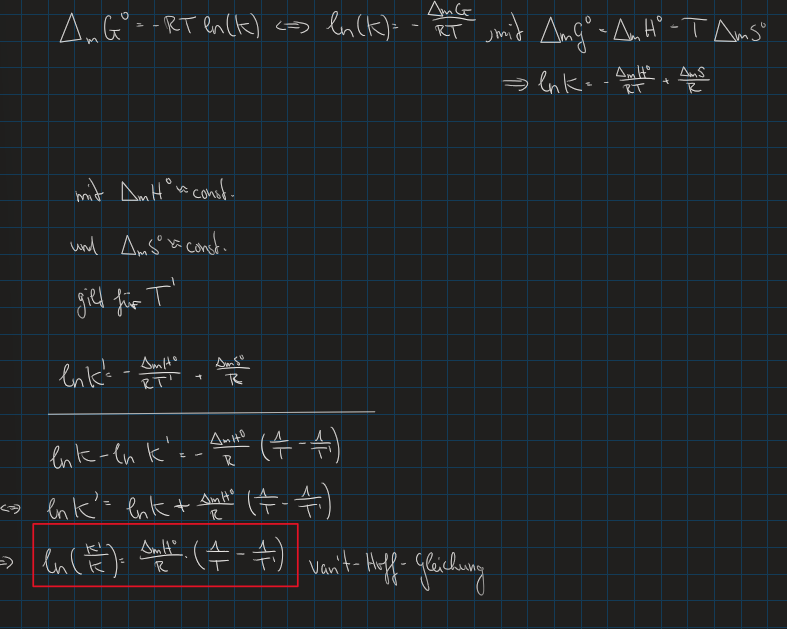 ΔₘG⁰ = -RT ln(k) ⟺ ln(k) = - ΔₘG/RT , mit Δₘg⁰ = ΔₘH⁰ - T ΔₘS⁰
⇒ ln K = - ΔₘH⁰/RT + ΔₘS/R
mit ΔₘH⁰ ≈ const.
und ΔₘS⁰ ≈ const.
gilt für T'
ln K' = - ΔₘH⁰/RT' + ΔₘS⁰/R
ln K - ln K' = - ΔₘH⁰/R (1/T - 1/T')
⟺ ln K' = ln K + ΔₘH⁰/R (1/T - 1/T')
⇒ ln(K'/K) = ΔₘH⁰/R · (1/T - 1/T') van't-Hoff-Gleichung